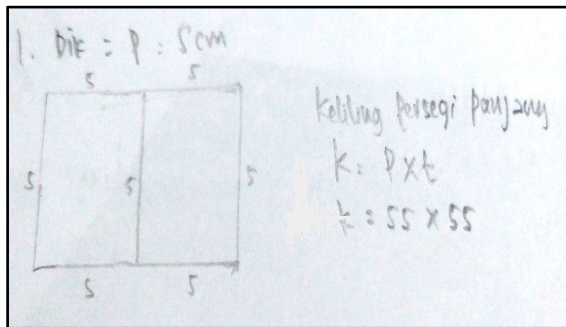 1. Dik = P = 5 cm
5 5
5 5 5
5 5
Keliling persegi panjang
K = P x t
K = 55 x 55